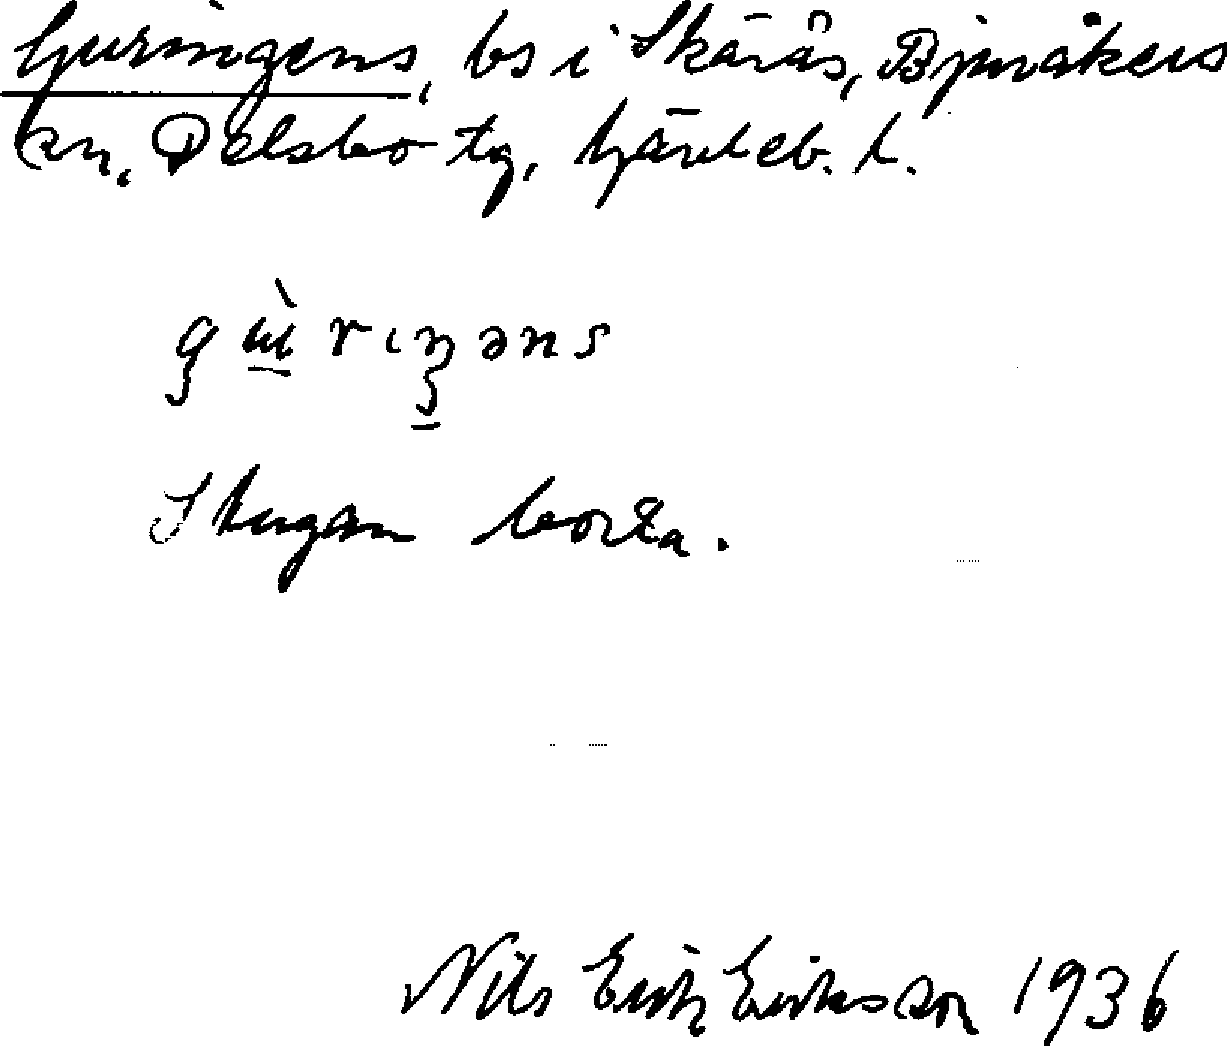 Guringens, bs i Skärås, Bjuråkers
sn, Delsbo tg, Gävleb. l.
Stugan borta.
Nils Erik Eriksson 1936